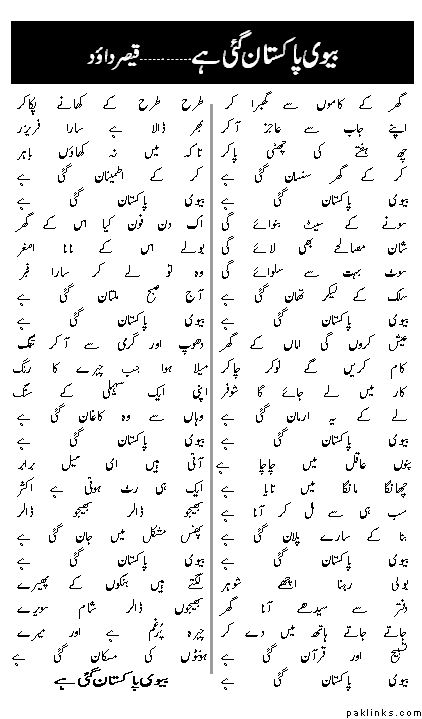 بیوی پاکستان گئی ہے.............قیصر داؤد
گھر کے کاموں سے گھبرا کر
اپنے جاب سے عاجز آکر
چھ ہفتے کی چھٹی پاکر
کر کے گھر سنسان گئی ہے
بیوی پاکستان گئی ہے
سونے کے سیٹ بنوائے گی
شان مصالحے بھی لائے گی
سوٹ بہت سے سلوائے گی
سلک کے لیکر تھان گئی ہے
بیوی پاکستان گئی ہے
عیش کروں گی اماں کے گھر
کام کریں گے نوکر چاکر
کار میں لے جائے گا شوفر
لے کے یہ ارمان گئی ہے
بیوی پاکستان گئی ہے
بنوں عاقل میں چاچا ہے
چھانگا مانگا میں تایا ہے
سب ہی سے مل کر آنا ہے
بنا کے سارے پلان گئی ہے
بیوی پاکستان گئی ہے
بولی رہنا اچھے شوہر
دفتر سے سیدھے آنا گھر
جاتے جاتے ہاتھ میں دے کر
تسبیح اور قرآن گئی ہے
بیوی پاکستان گئی ہے
طرح طرح کے کھانے پکاکر
بھر ڈالا ہے سارا فریزر
تاکہ میں نہ کھاؤں باہر
کر کے اطمینان گئی ہے
بیوی پاکستان گئی ہے
اک دن فون کیا اس کے گھر
بولے اس کے نانا اصغر
وہ تو لے کر سارا
آج صبح ملتان گئی ہے
بیوی پاکستان گئی ہے
دھوپ اور گرمی سے آکر تنگ
میلا ہوا جب چہرے کا رنگ
اپنی ایک سہیلی کے سنگ
وہاں سے وہ کاغان گئی ہے
بیوی پاکستان گئی ہے
آتی ہیں ای میل برابر
ایک ہی رٹ ہوتی ہے اکثر
بھیجو ڈالر بھیجو ڈالر
پھنس مشکل میں جان گئی ہے
بیوی پاکستان گئی ہے
لگتے ہیں بنکوں کے پھیرے
بھیجوں ڈالر شام سویرے
چہرہ پرغم ہے اور میرے
ہونٹوں کی مسکان گئی ہے
بیوی پاکستان گئی ہے
paklinks.com